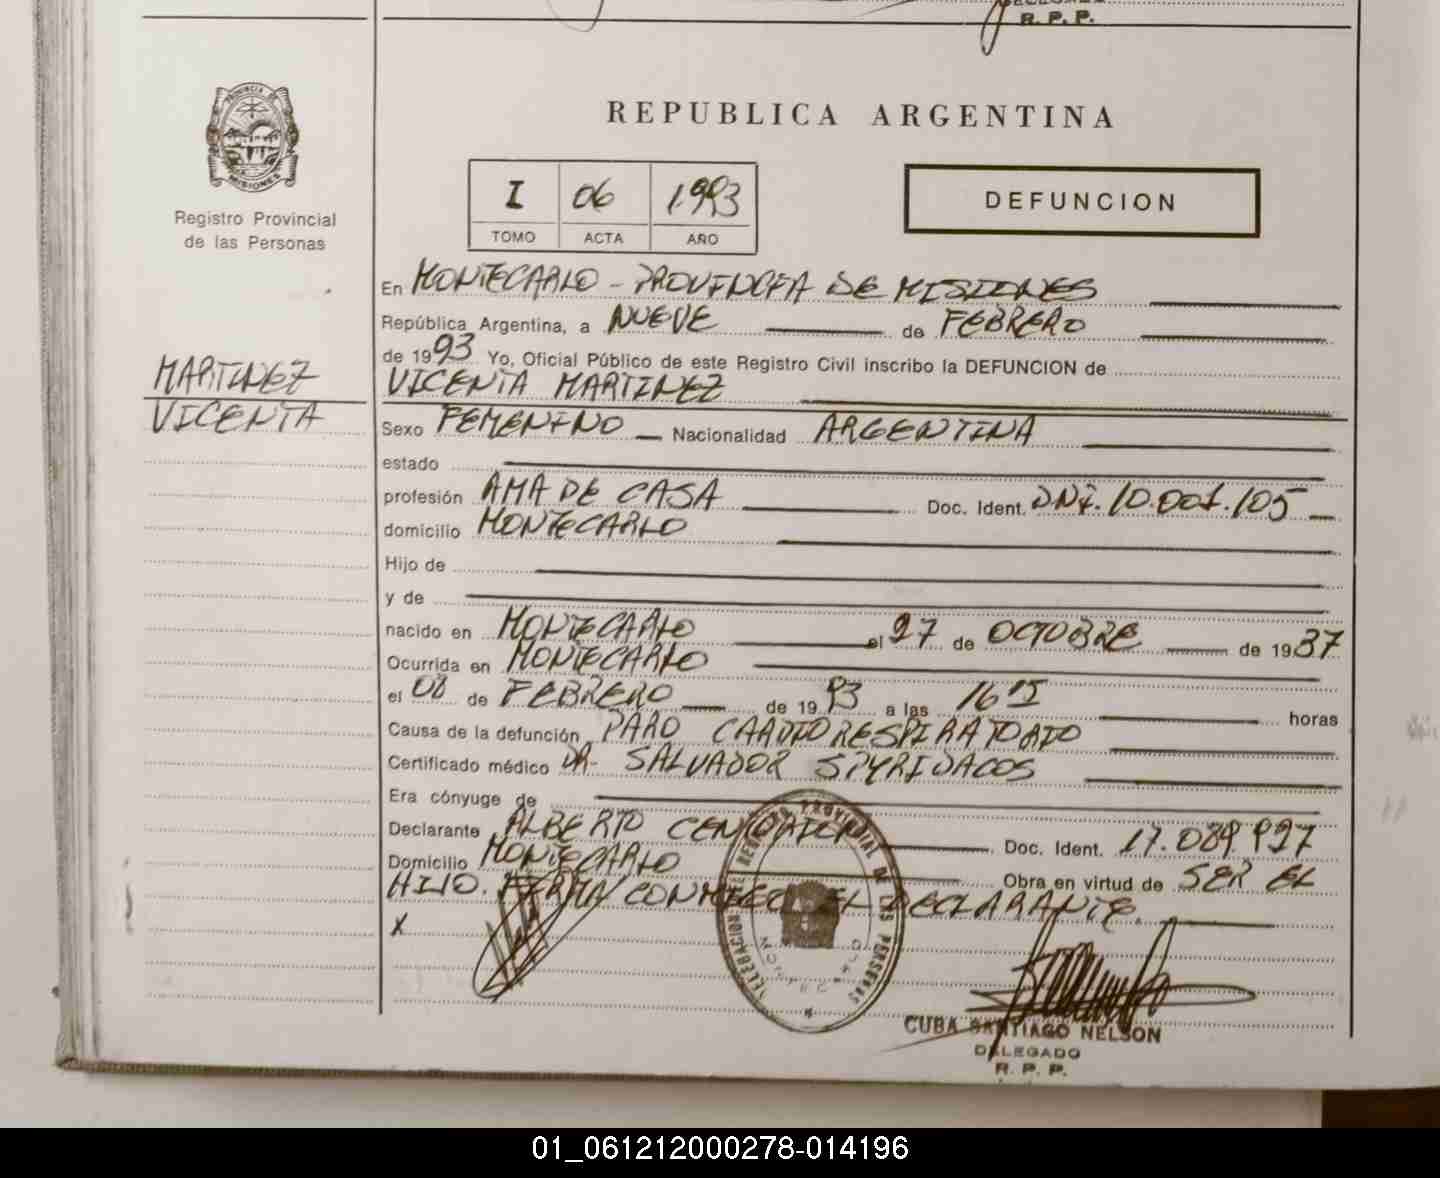 R. P. P.
PROVINCIA DE
MISIONES
Registro Provincial
de las Personas
REPUBLICA ARGENTINA
I 06 1993
TOMO ACTA AÑO
DEFUNCION
En MONTECARLO - PROVINCIA DE MISIONES
República Argentina, a NUEVE de FEBRERO
de 1993 Yo, Oficial Público de este Registro Civil inscribo la DEFUNCION de
MARTINEZ
VICENTA
VICENTA MARTINEZ
Sexo FEMENINO Nacionalidad ARGENTINA
estado
profesión AMA DE CASA Doc. Ident. DNI. 10.001.105
domicilio MONTECARLO
Hijo de
y de
nacido en MONTECARLO el 27 de OCTUBRE de 1937
Ocurrida en MONTECARLO
el 08 de FEBRERO de 1993 a las 16 15 horas
Causa de la defunción PARO CARDIORESPIRATORIO
Certificado médico DR. SALVADOR SPYRIDACOS
Era cónyuge de
Declarante ALBERTO Doc. Ident. 17.089.927
Domicilio MONTECARLO Obra en virtud de SER EL
HIJO. FIRMA CONMIGO EL DECLARANTE.
X
CUBA SANTIAGO NELSON
DELEGADO
R. P. P.
01_061212000278-014196